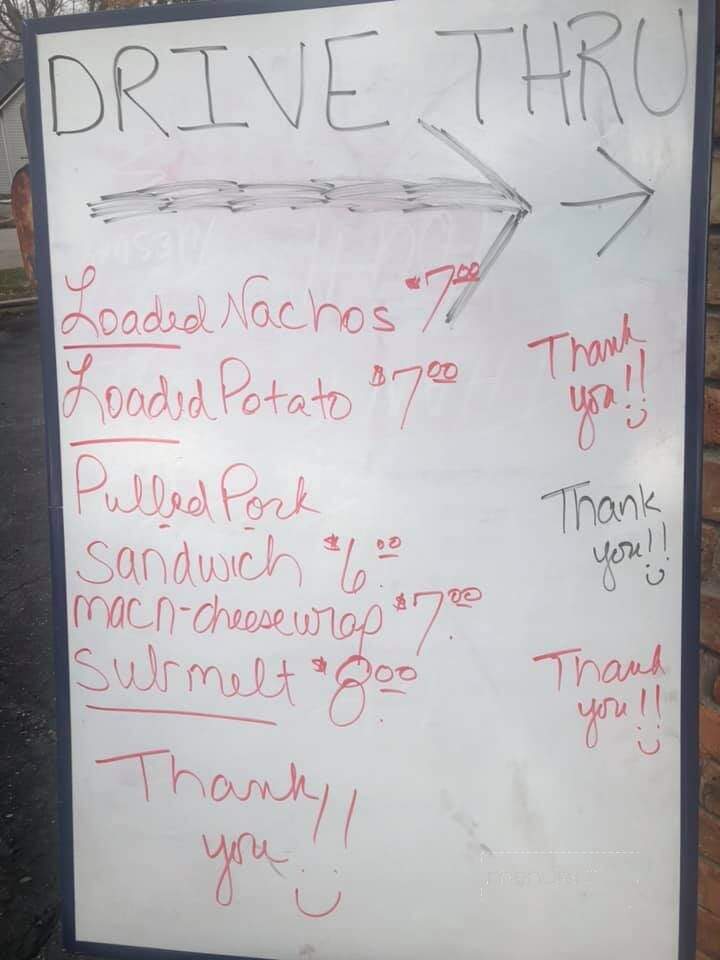 DRIVE THRU
Loaded Nachos $7.00
Loaded Potato $7.00
Pulled Pork
Sandwich $6.00
mac n-cheese wrap $7.00
Sub melt $8.00
Thank
you!!
Thank
you!!
Thank
you!!
Thank
you!!